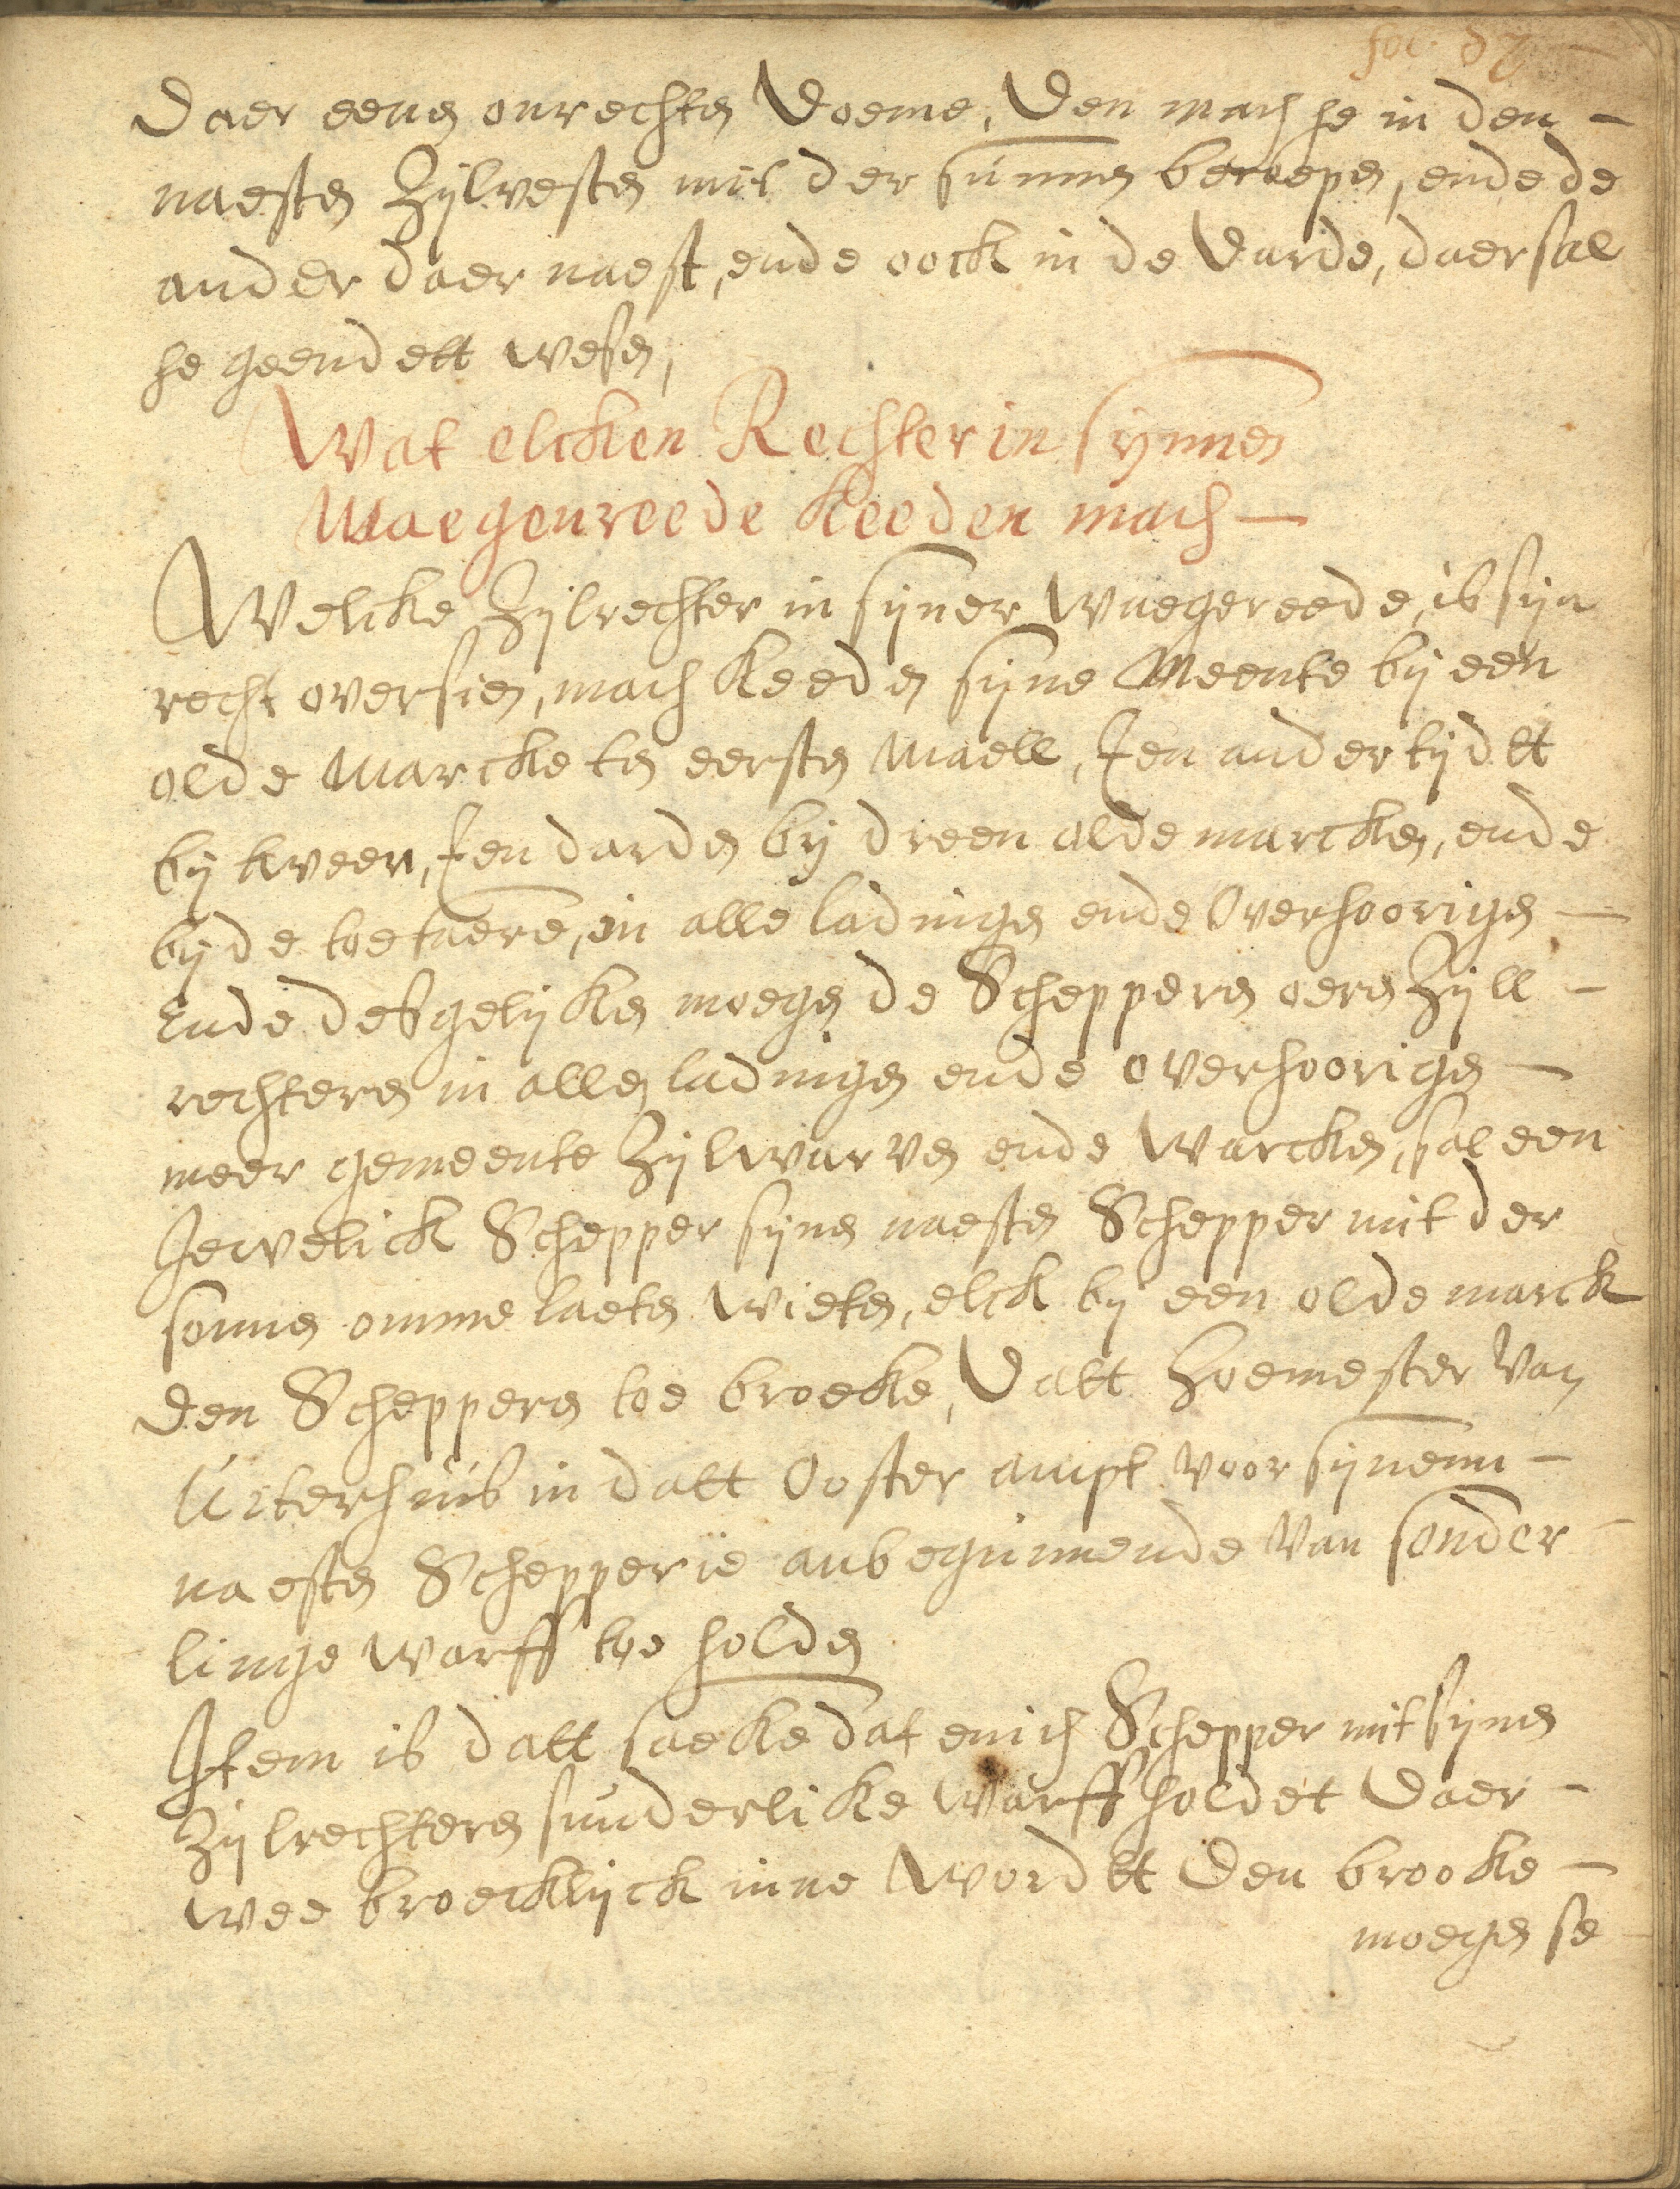 fol. 87
Daer eenen onrechten Doeme, Den mach he in den -
naesten Zijlvesten mit der sunnen beroepen, ende de
ander daer naest, ende oock in de Darde, daer sal
he geendett wesen,
Wat elcken Rechter in synnen
Waegenreede Keeden mach -
Welcke Zijlrechter in sijner Waegereede, is sijn
recht oversien, mach Keeden sijne Meente bij een
olde Marcke ten eersten Maell, Ten andertijdtt
bij tween, Ten darden bij dreen olde marcken, ende
bij de in alle ladingen ende Overhoorigen -
Ende desgelijken moegen de Scheppers oere Zijll -
rechteren in allen ladingen ende overhoorigen -
meer gemeente Zijlwarven ende Warcken, sal een
Jewelick Schepper sijnen naesten Schepper mit der
sonnen omme laeten Wieten, elck bij een olde marck
Den Scheppers toe broeke, Datt Hoemester Van
Uiterhuis in datt Ooster ampt voor sijnenn -
naesten Schepperie anbeginnende Van sonder -
linge warff toe holden
Item is datt saeke dat enich Schepper mit sijnen
Zijlrechteren sunderlike Warff holdet Daer -
wee broecklijck inne Wordtt Den brooke -
moegen se